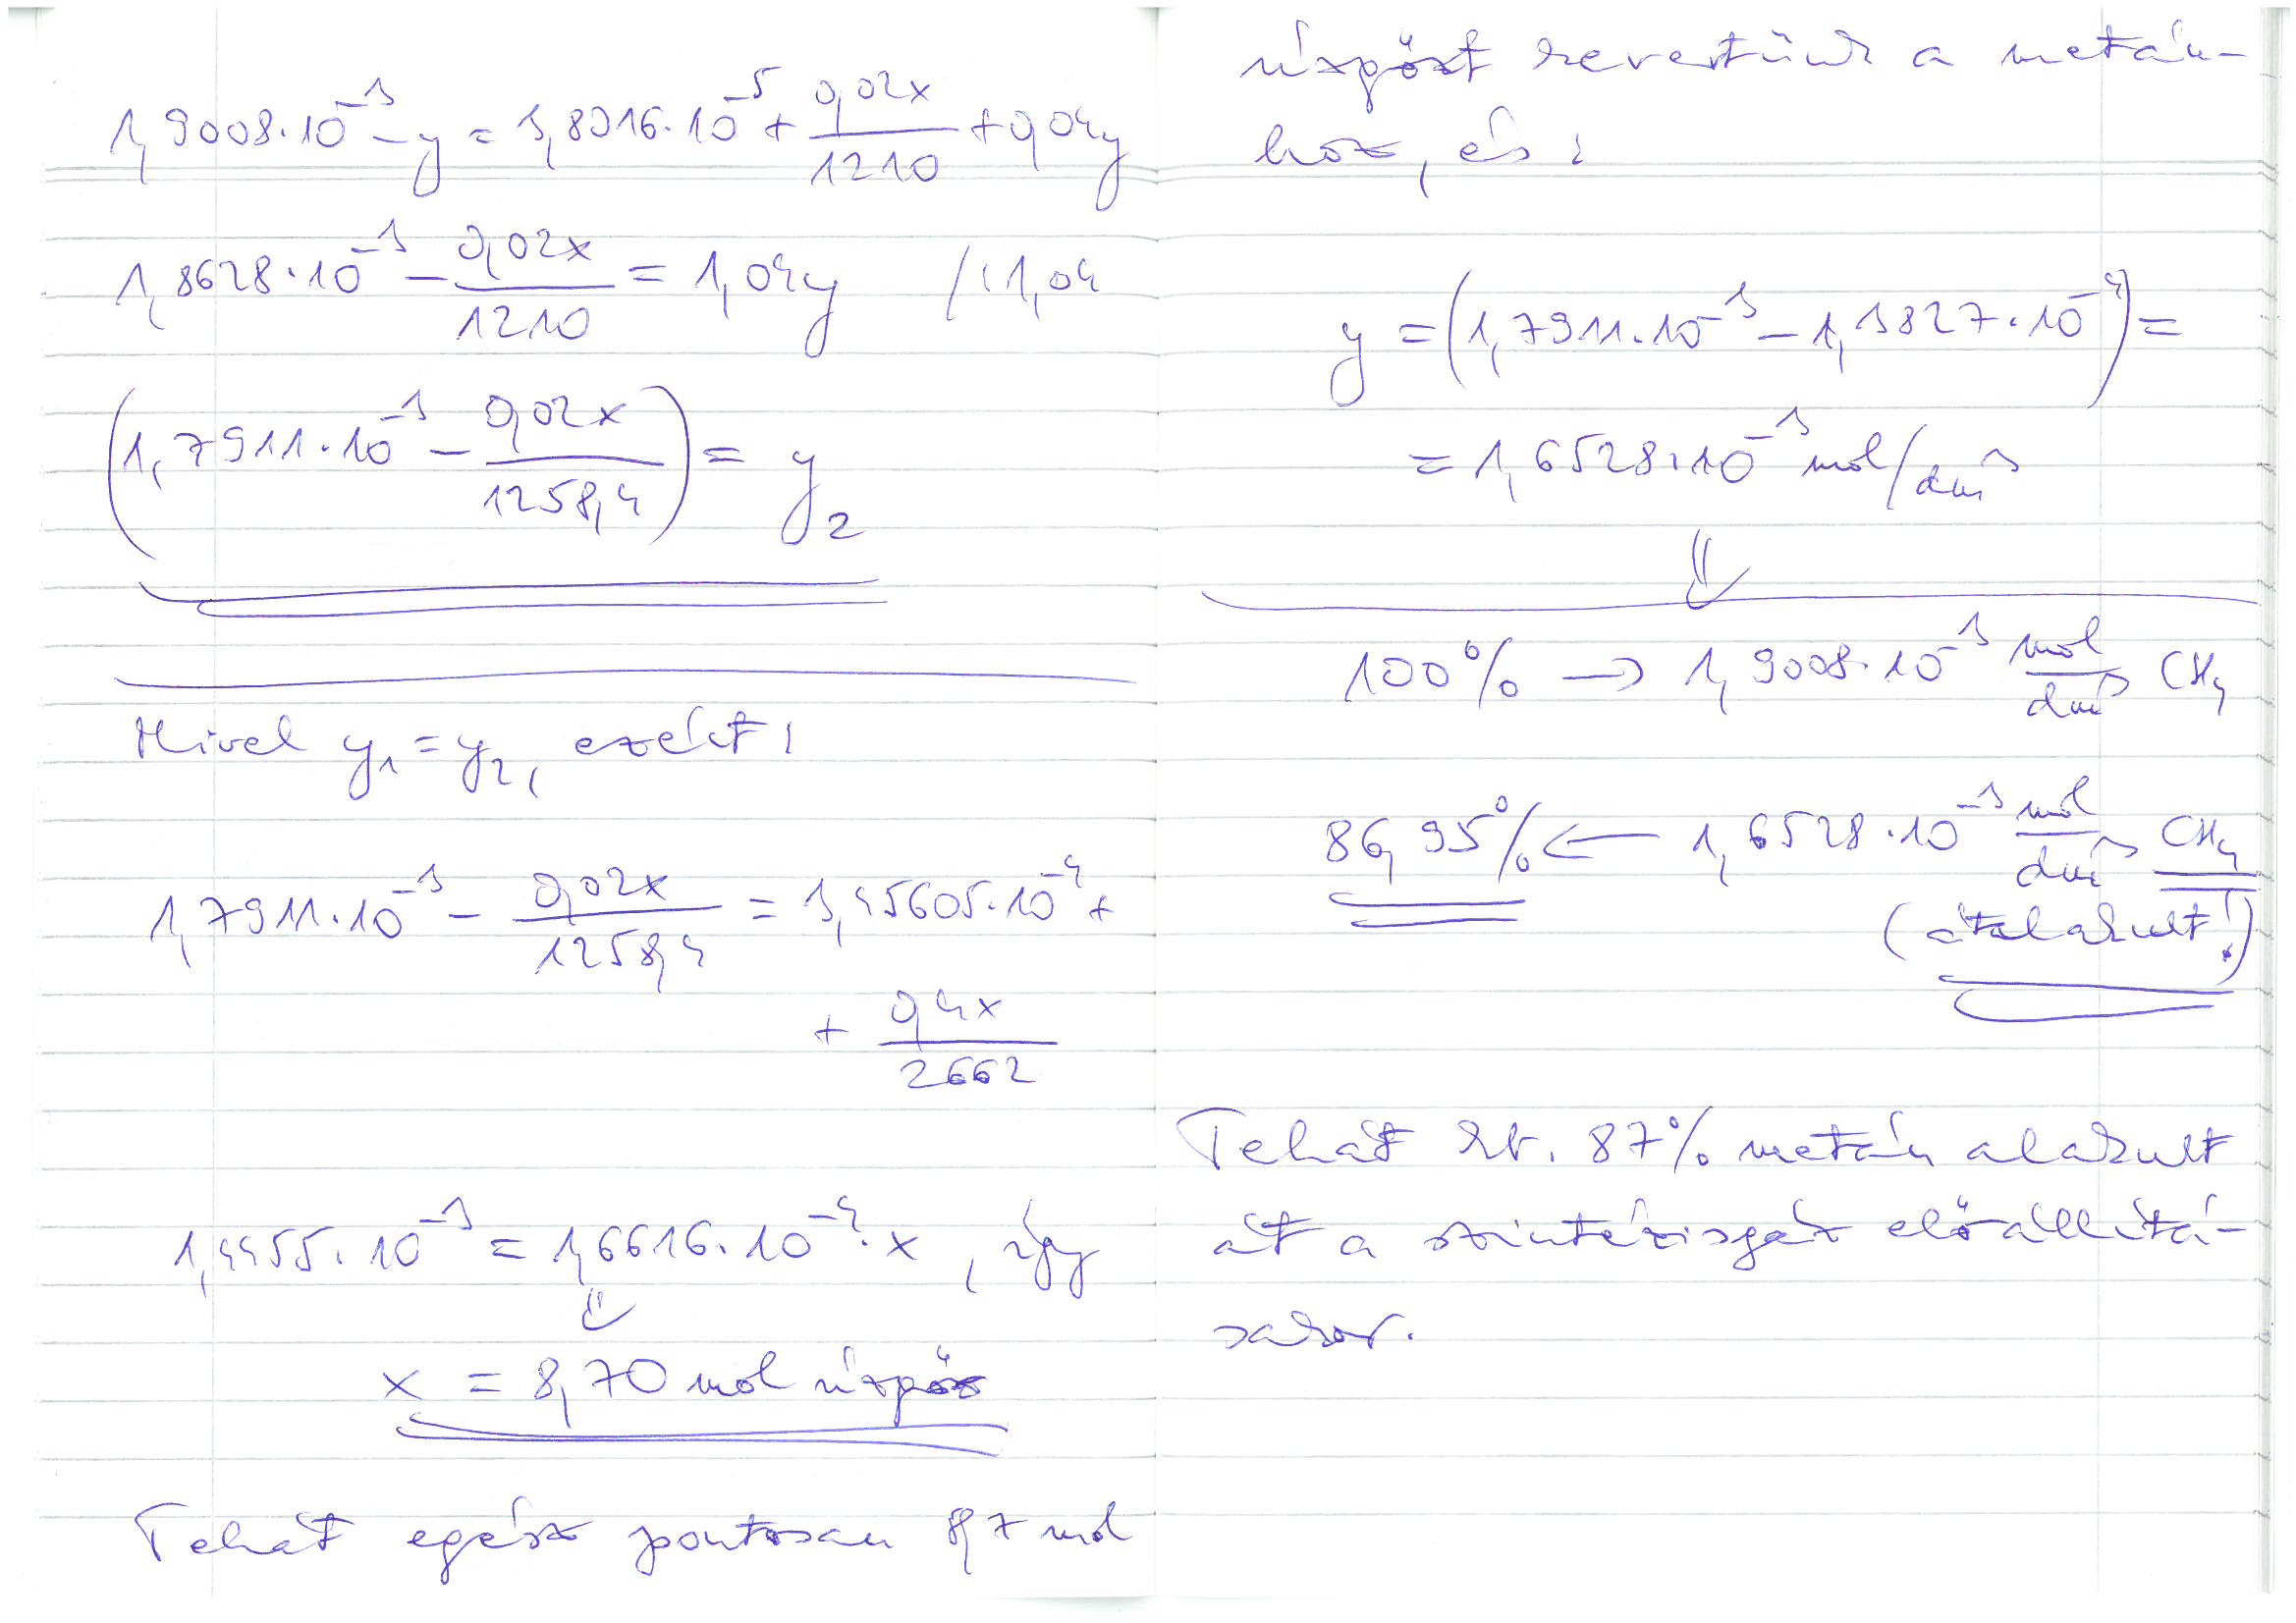 1,9008·10⁻³ - y = 3,8016·10⁻⁵ + 0,02x/1210 + 0,04y
1,8628·10⁻³ - 0,02x/1210 = 1,04y /:1,04
(1,7911·10⁻³ - 0,02x/1258,4) = y₂
Mivel y₁ = y₂, ezért:
1,7911·10⁻³ - 0,02x/1258,4 = 3,45605·10⁻⁴ +
+ 0,4x/2662
1,4455·10⁻³ = 1,6616·10⁻⁴·x, így
⇓
x = 8,70 mol vízgőz
Tehát egész pontosan 8,7 mol
vízgőzt kevertünk a metán-
hoz, és:
y = (1,7911·10⁻³ - 1,3827·10⁻⁴) =
= 1,6528·10⁻³ mol/dm³
⇓
100% → 1,9008·10⁻³ mol/dm³ CH₄
86,95% ← 1,6528·10⁻³ mol/dm³ CH₄
(átalakult!)
Tehát kb. 87% metán alakult
át a szintézisgáz előállítá-
sakor.